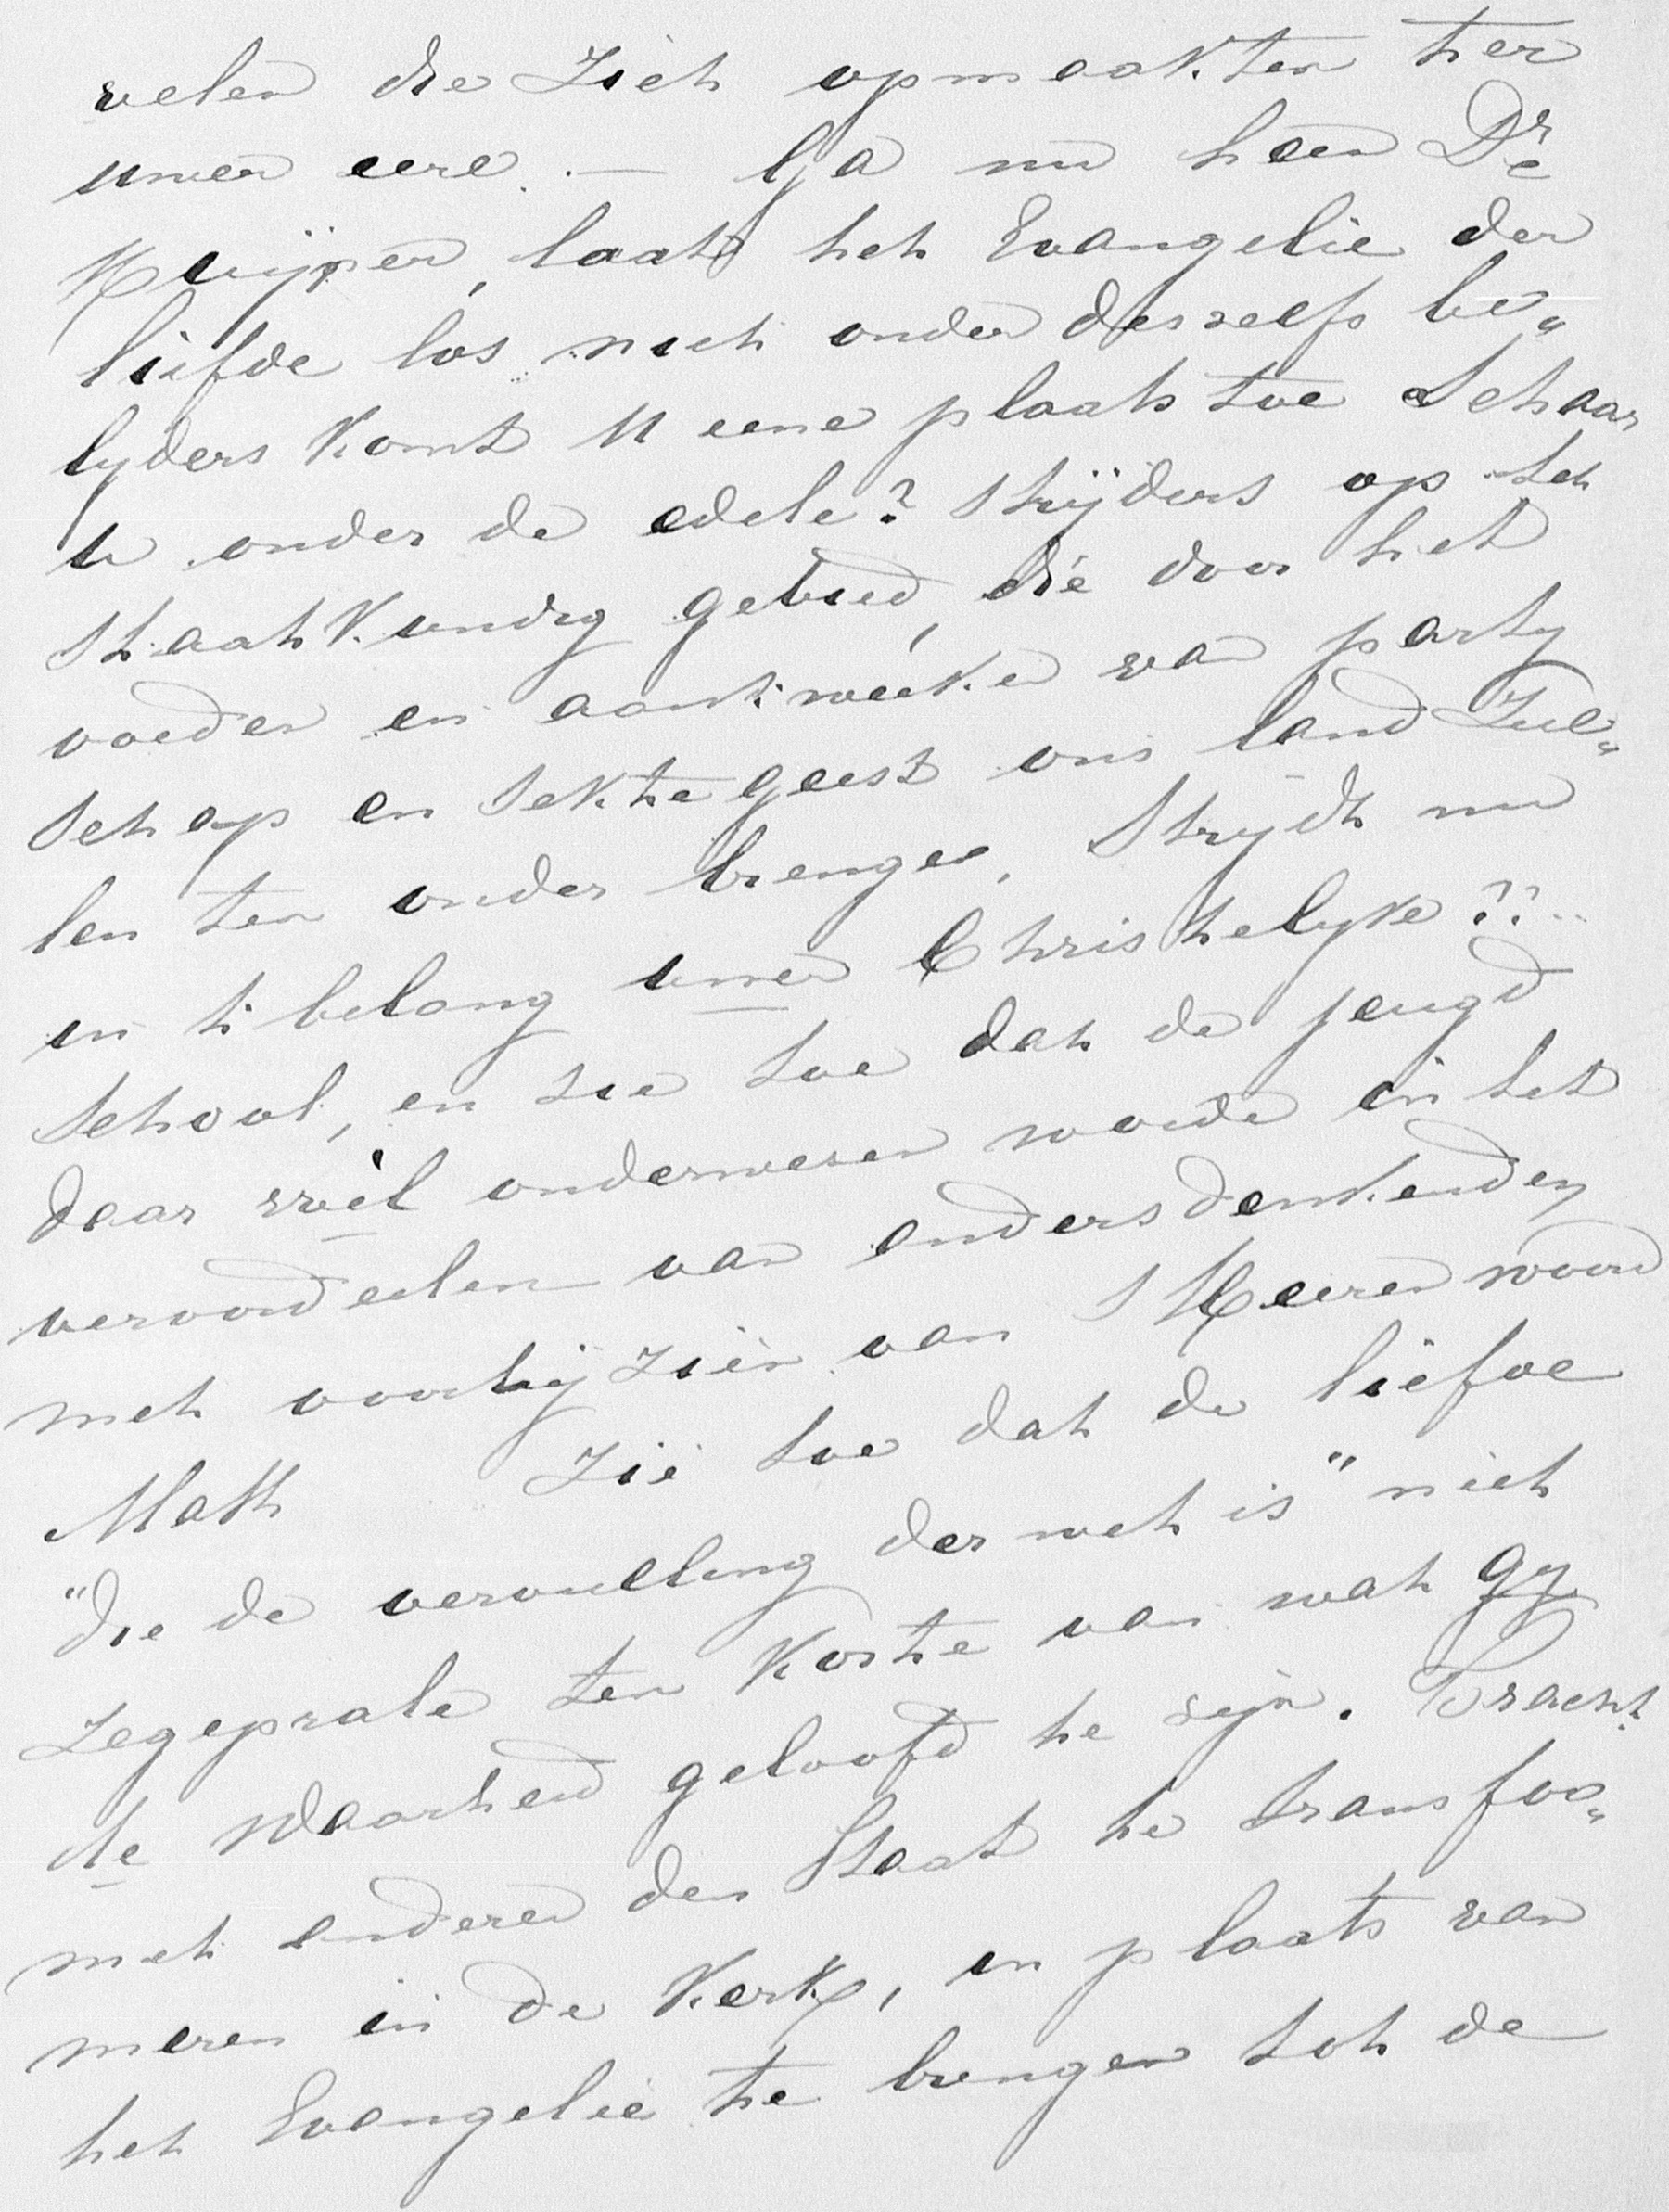 velen die zich opmaakten ter
uwen eere. — Ga nu heen Dr
Kuijper, laat het Evangelie der
liefde los, niet onder deszelfs be„
lyders komt U eene plaats toe Schaar
u onder de edele? strijders op het
staatkundig gebied, die door het
voeden en aankweeken van party
schap en sektegeest ons land zul„
len ten onder brengen, Strydt nu
in 't belang uwer Christelyke??
School, en zie toe dat de jeugd
daar wèl onderwezen worde in het
veroordeelen van andersdenkenden
met voorbijzien van 's Heeren woord
Matth Zie toe dat de liefde
"die de vervulling der wet is" niet
zegeprale ten koste van wat gy
de Waarheid gelooft te zijn. Tracht
met anderen den Staat te transfor„
meren in de Kerk, in plaats van
het Evangelie te brengen tot de